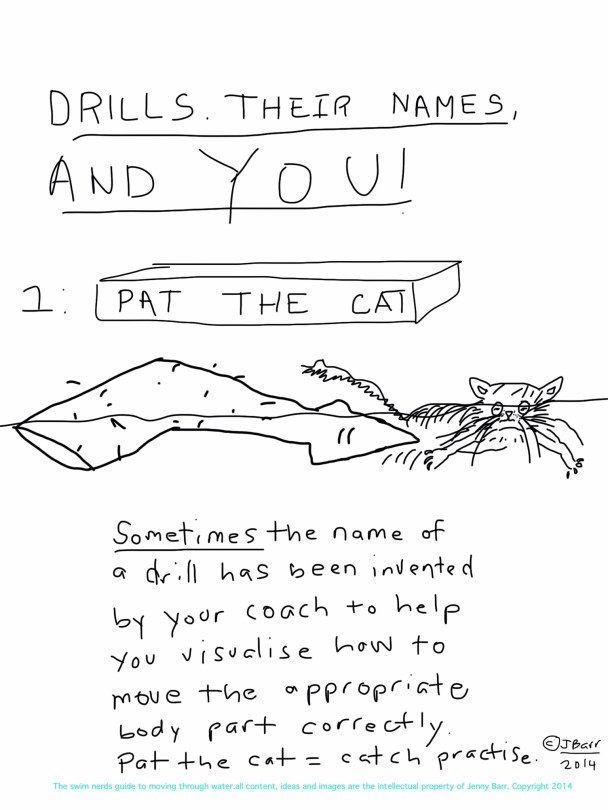 DRILLS. THEIR NAMES,
AND YOU!
1: PAT THE CAT
Sometimes the name of
a drill has been invented
by your coach to help
you visualise how to
move the appropriate
body part correctly.
Pat the cat = catch practise.
©JBarr
2014
The swim nerds guide to moving through water.all content, ideas and images are the intellectual property of Jenny Barr. Copyright 2014